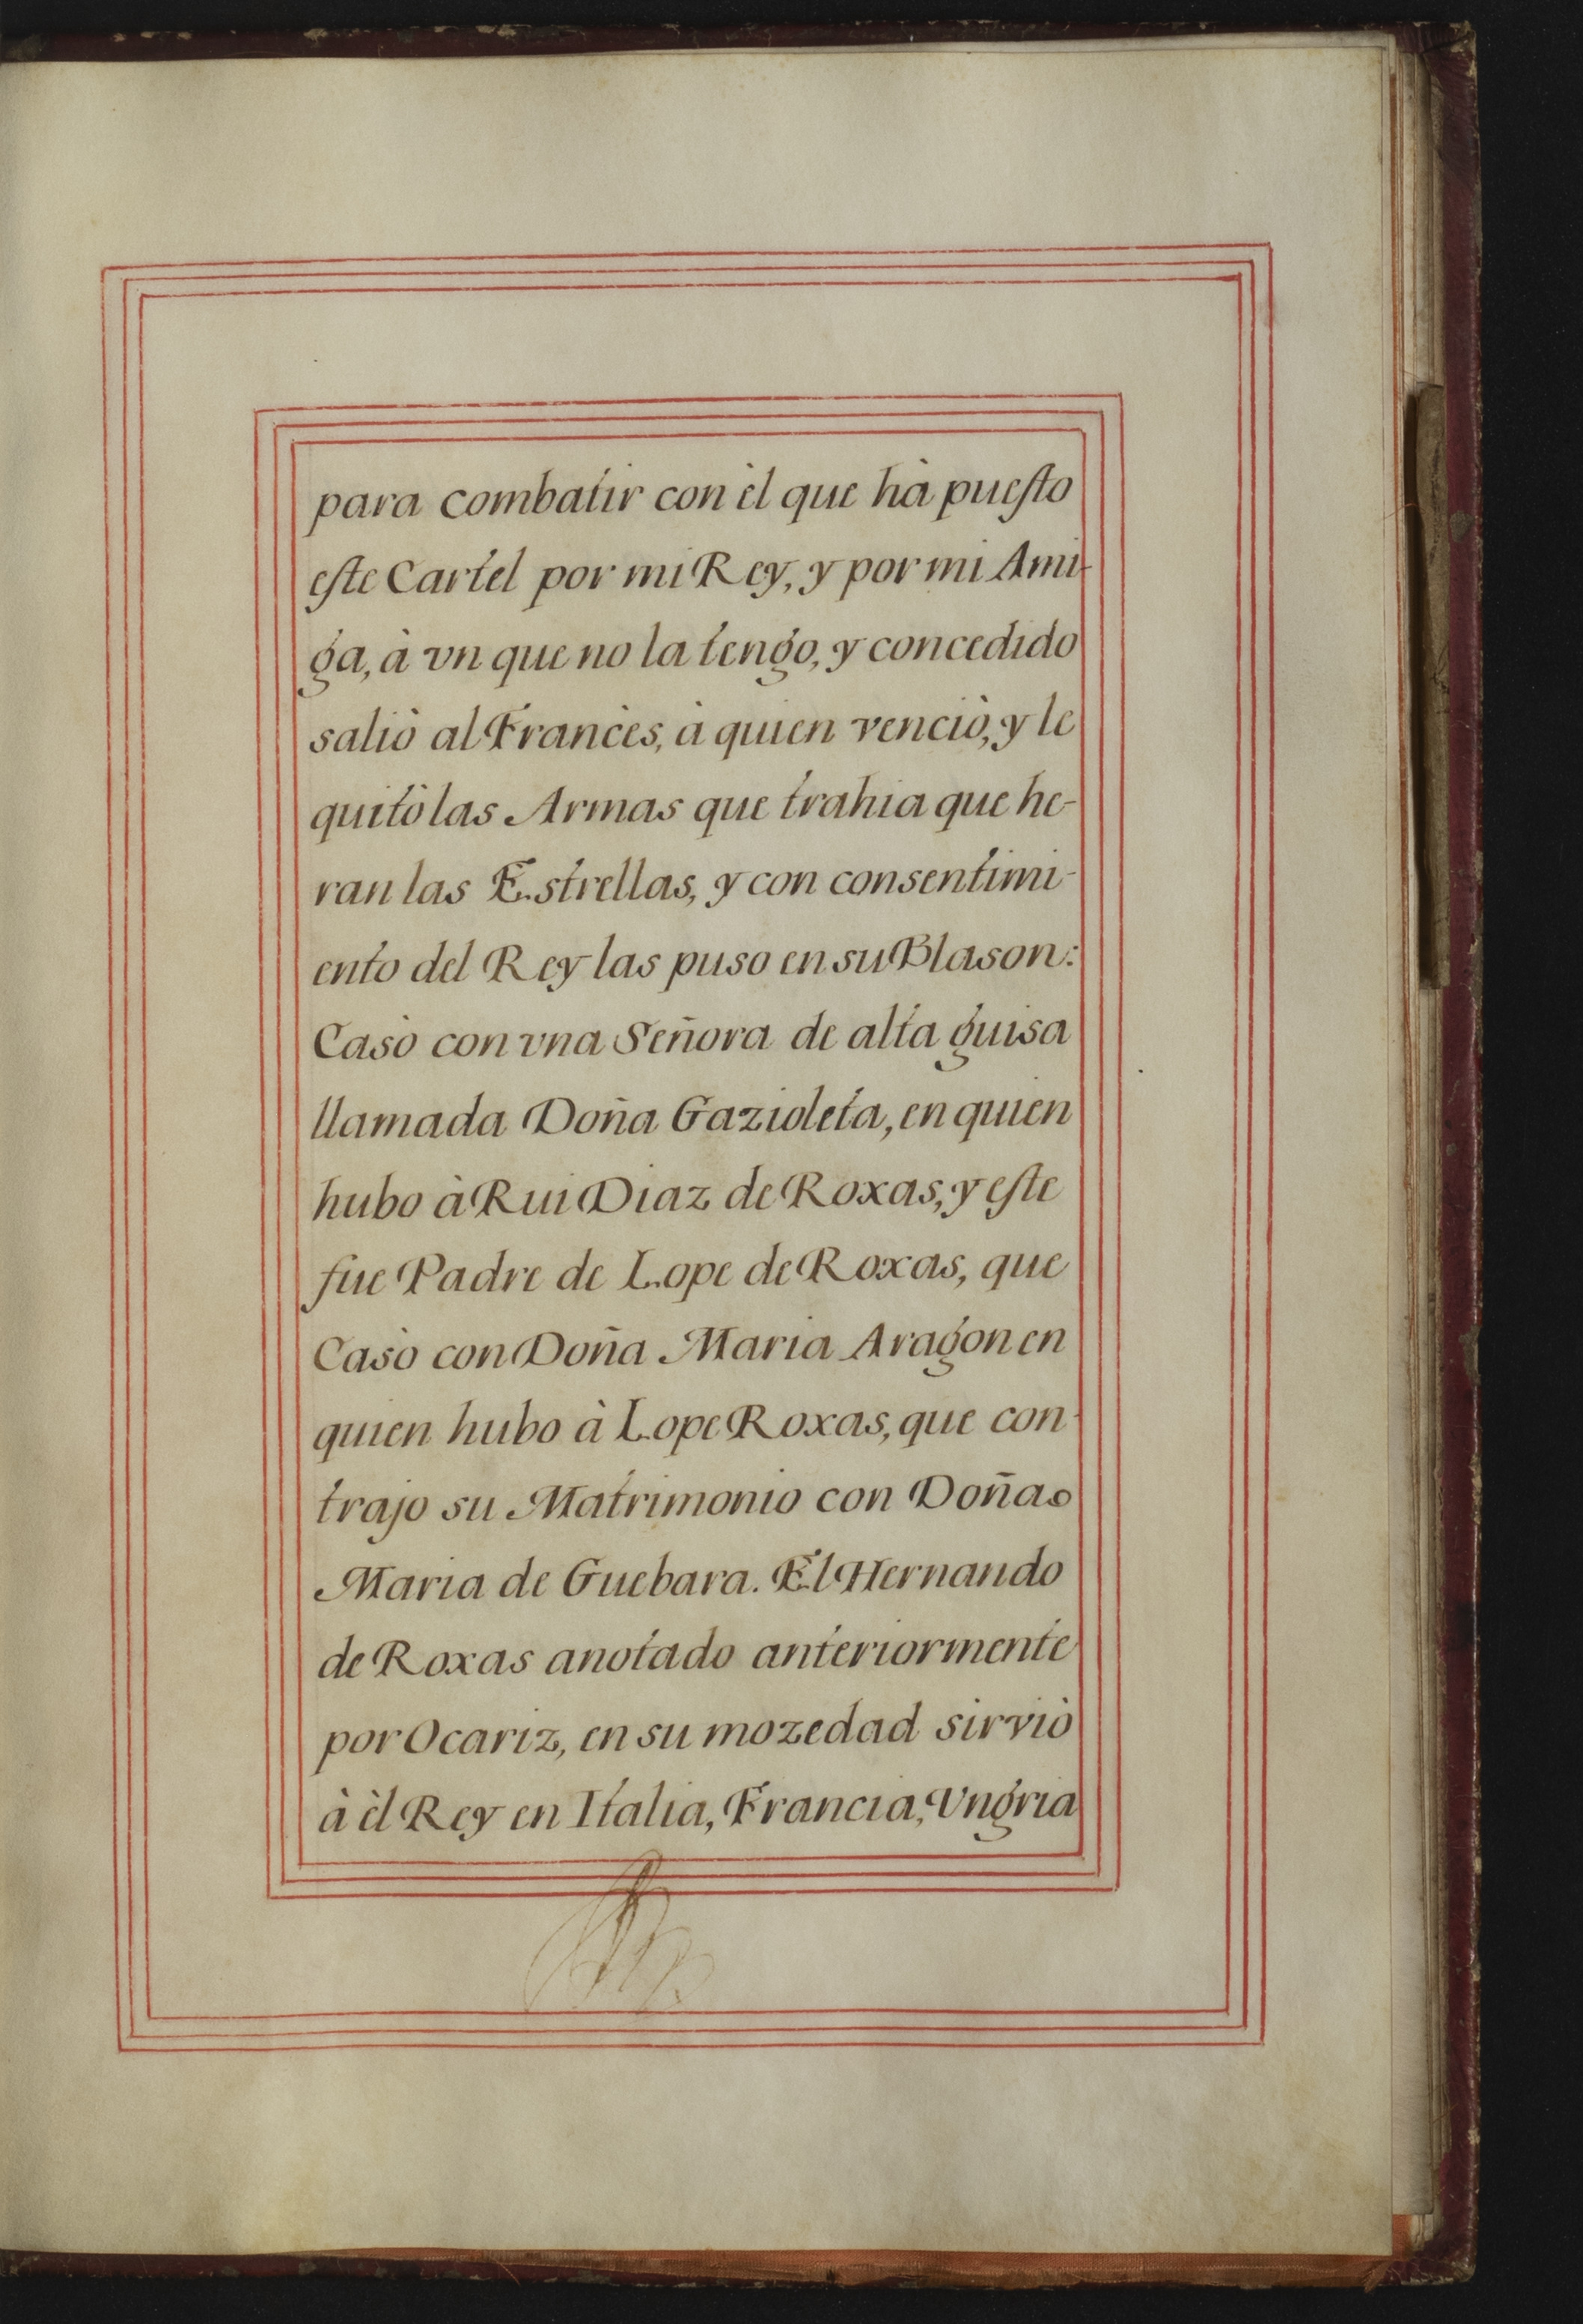 para combatir con èl que hà puesto
este Cartel por mi Rey, y por mi Ami-
ga, à vn que no la tengo, y concedido
saliò al Francès, à quien venciò, y le
quitò las Armas que trahia que he-
ran las Estrellas, y con consentimi-
ento del Rey las puso en su Blason:
Casò con vna Señora de alta guisa
llamada Doña Gazioleta, en quien
hubo à Rui Diaz de Roxas, y este
fue Padre de Lope de Roxas, que
Casò con Doña Maria Aragon en
quien hubo à Lope Roxas, que con-
trajo su Matrimonio con Doña
Maria de Guebara. El Hernando
de Roxas anotado anteriormente
por Ocariz, en su mozedad sirviò
à èl Rey en Italia, Francia, Vngria